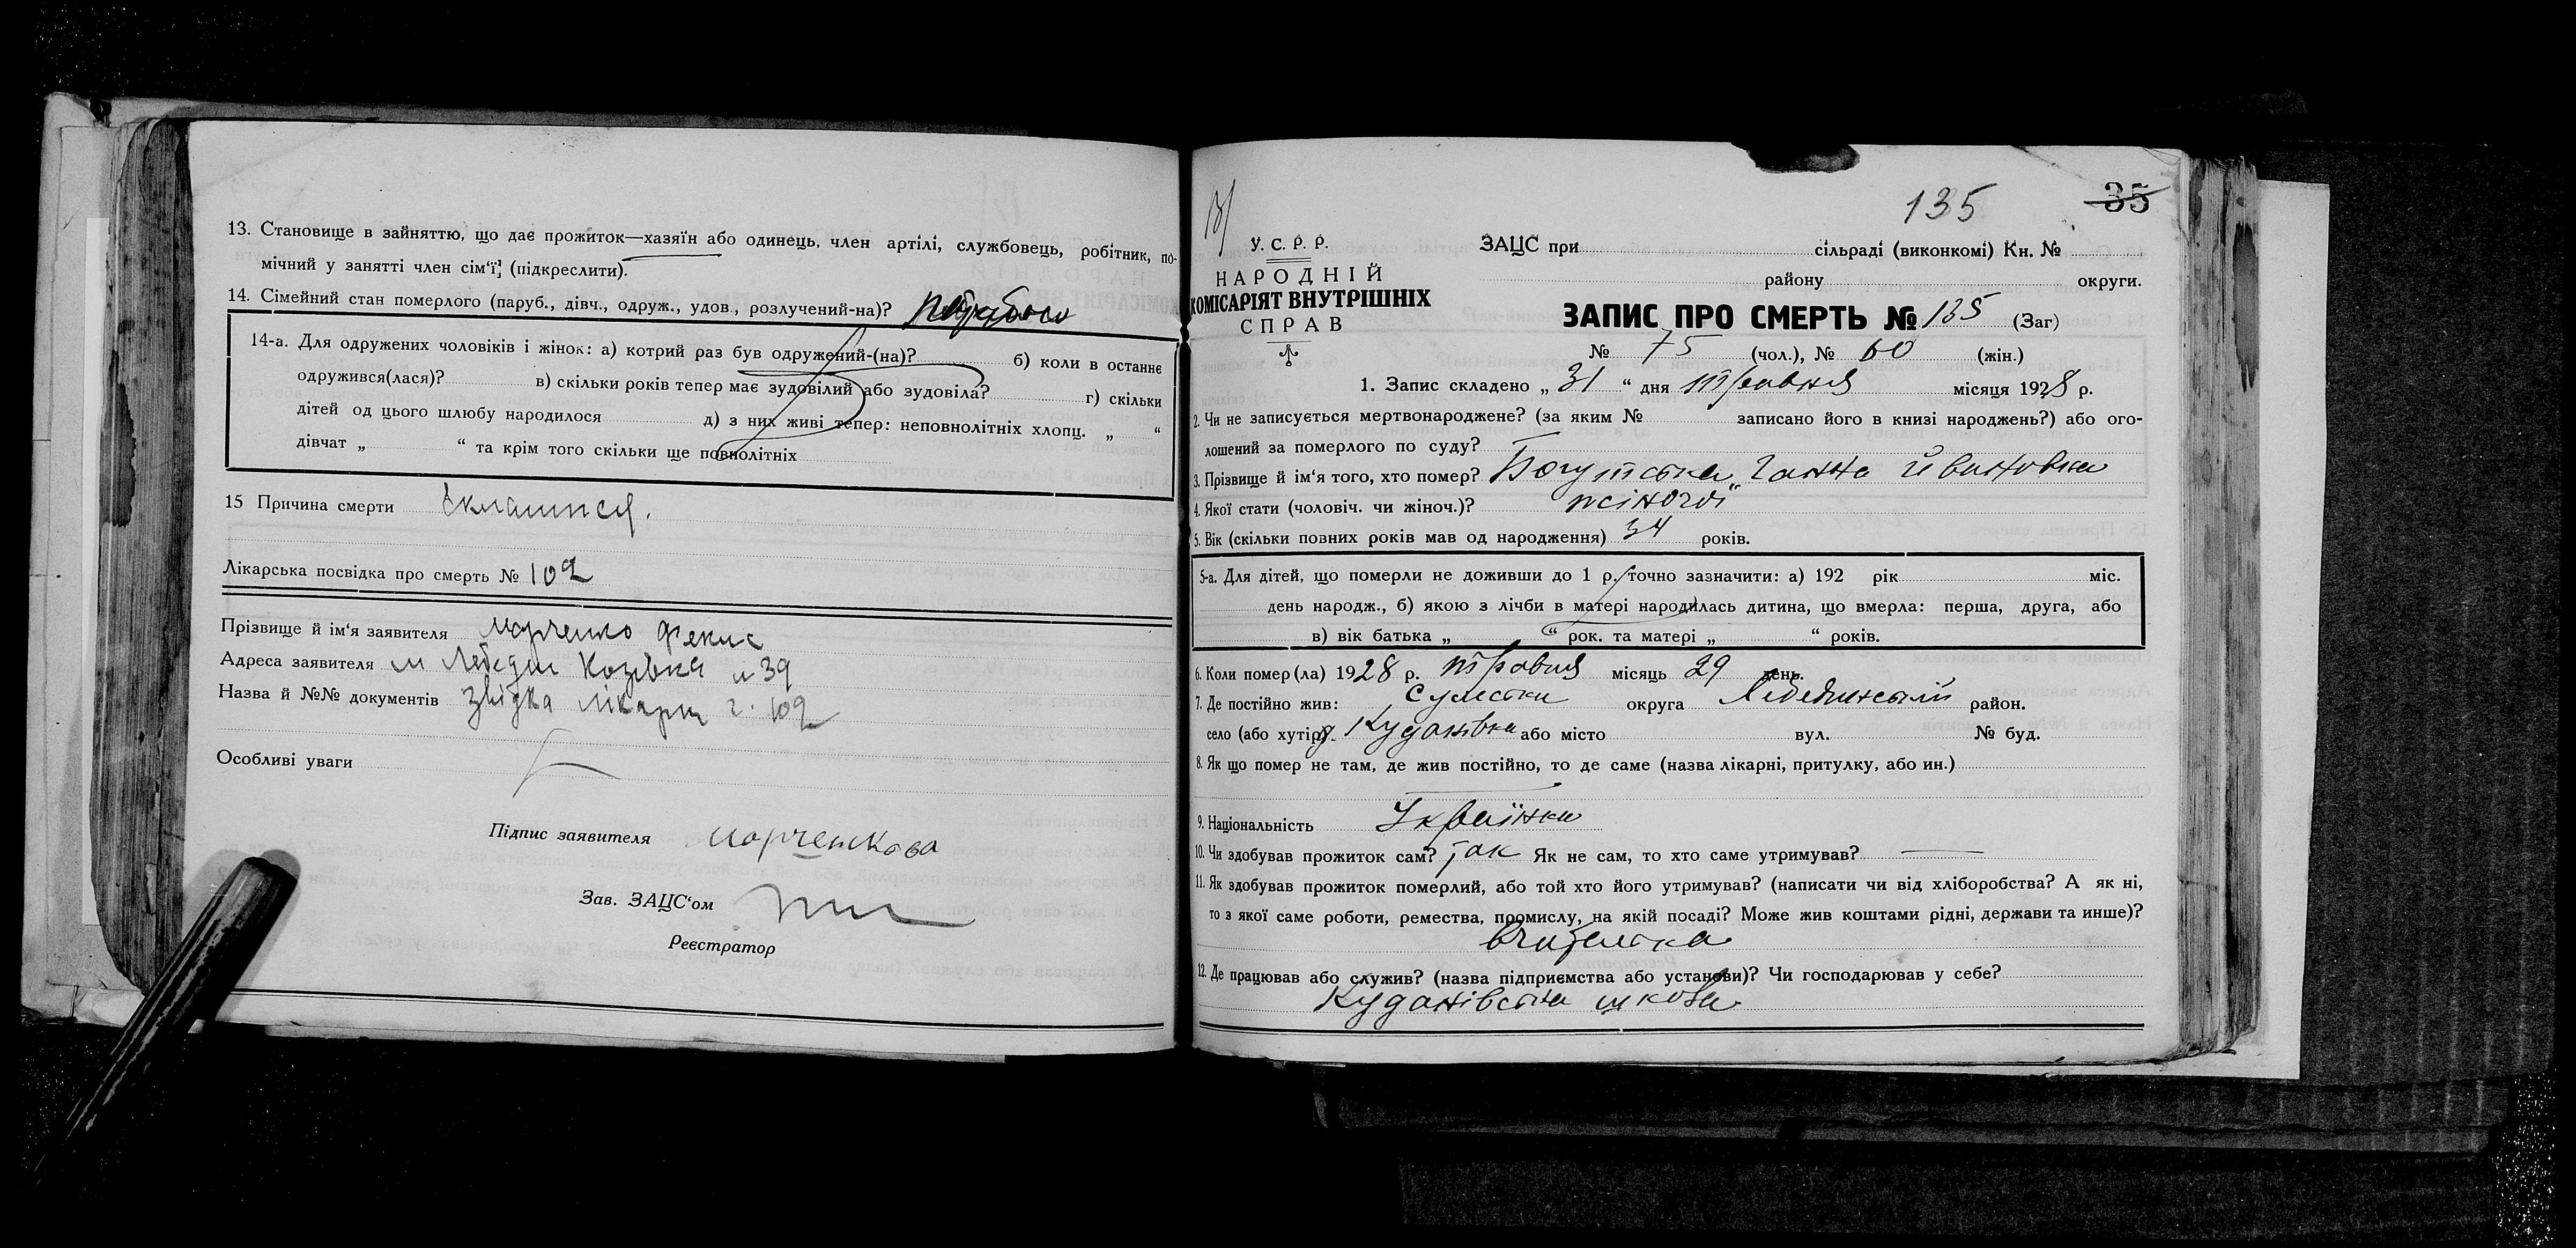 13. Становище в зайняттю, що дає прожиток—хазяїн або одинець, член артілі, службовець, робітник, по-
мічний у занятті член сім'ї, (підкреслити).
14. Сімейний стан померлого (паруб., дівч., одруж., удов., розлучений-на)?
14-а. Для одружених чоловіків і жінок: а) котрий раз був одружений-(на)? б) коли в останнє
одружився(лася)? в) скільки років тепер має зудовілий або зудовіла? г) скільки
дітей од цього шлюбу народилося д) з них живі тепер: неповнолітніх хлопц. „ “
дівчат „ “ та крім того скільки ще повнолітніх
15 Причина смерти
Лікарська посвідка про смерть № 102
Прізвище й ім'я заявителя Марченко
Адреса заявителя м Лебедин Козівка 39
Назва й №№ документів звідка лікаря 102
Особливі уваги
Підпис заявителя Марченкова
Зав. ЗАЦС'ом
Реєстратор
135 35
У. С. Р. Р.
НАРОДНІЙ
КОМІСАРІЯТ ВНУТРІШНІХ
СПРАВ
ЗАЦС при сільраді (виконкомі) Кн. №
району округи.
ЗАПИС ПРО СМЕРТЬ № 135 (Заг)
№ 75 (чол.), № 60 (жін.)
1. Запис складено „ 31 “ дня травня місяця 1928 р.
2. Чи не записується мертвонароджене? (за яким № записано його в книзі народжень?) або ого-
лошений за померлого по суду?
3. Прізвище й ім'я того, хто помер? Богутська Ганна Йвановна
4. Якої стати (чоловіч. чи жіноч.)? жіночої
5. Вік (скільки повних років мав од народження) 34 років.
5-а. Для дітей, що померли не доживши до 1 р. точно зазначити: а) 192 рік міс.
день народж., б) якою з лічби в матері народилась дитина, що вмерла: перша, друга, або
в) вік батька „ “ рок. та матері „ “ років.
6. Коли помер(ла) 1928 р. травня місяць 29 день.
7. Де постійно жив: Сумської округа Лебединський район.
село (або хутір) Куданівка або місто вул. № буд.
8. Як що помер не там, де жив постійно, то де саме (назва лікарні, притулку, або ин.)
9. Національність Українка
10. Чи здобував прожиток сам? так Як не сам, то хто саме утримував?
11. Як здобував прожиток померлий, або той хто його утримував? (написати чи від хліборобства? А як ні,
то з якої саме роботи, ремества, промислу, на якій посаді? Може жив коштами рідні, держави та инше)?
вчителька
12. Де працював або служив? (назва підприємства або установи)? Чи господарював у себе?
Куданівська школа